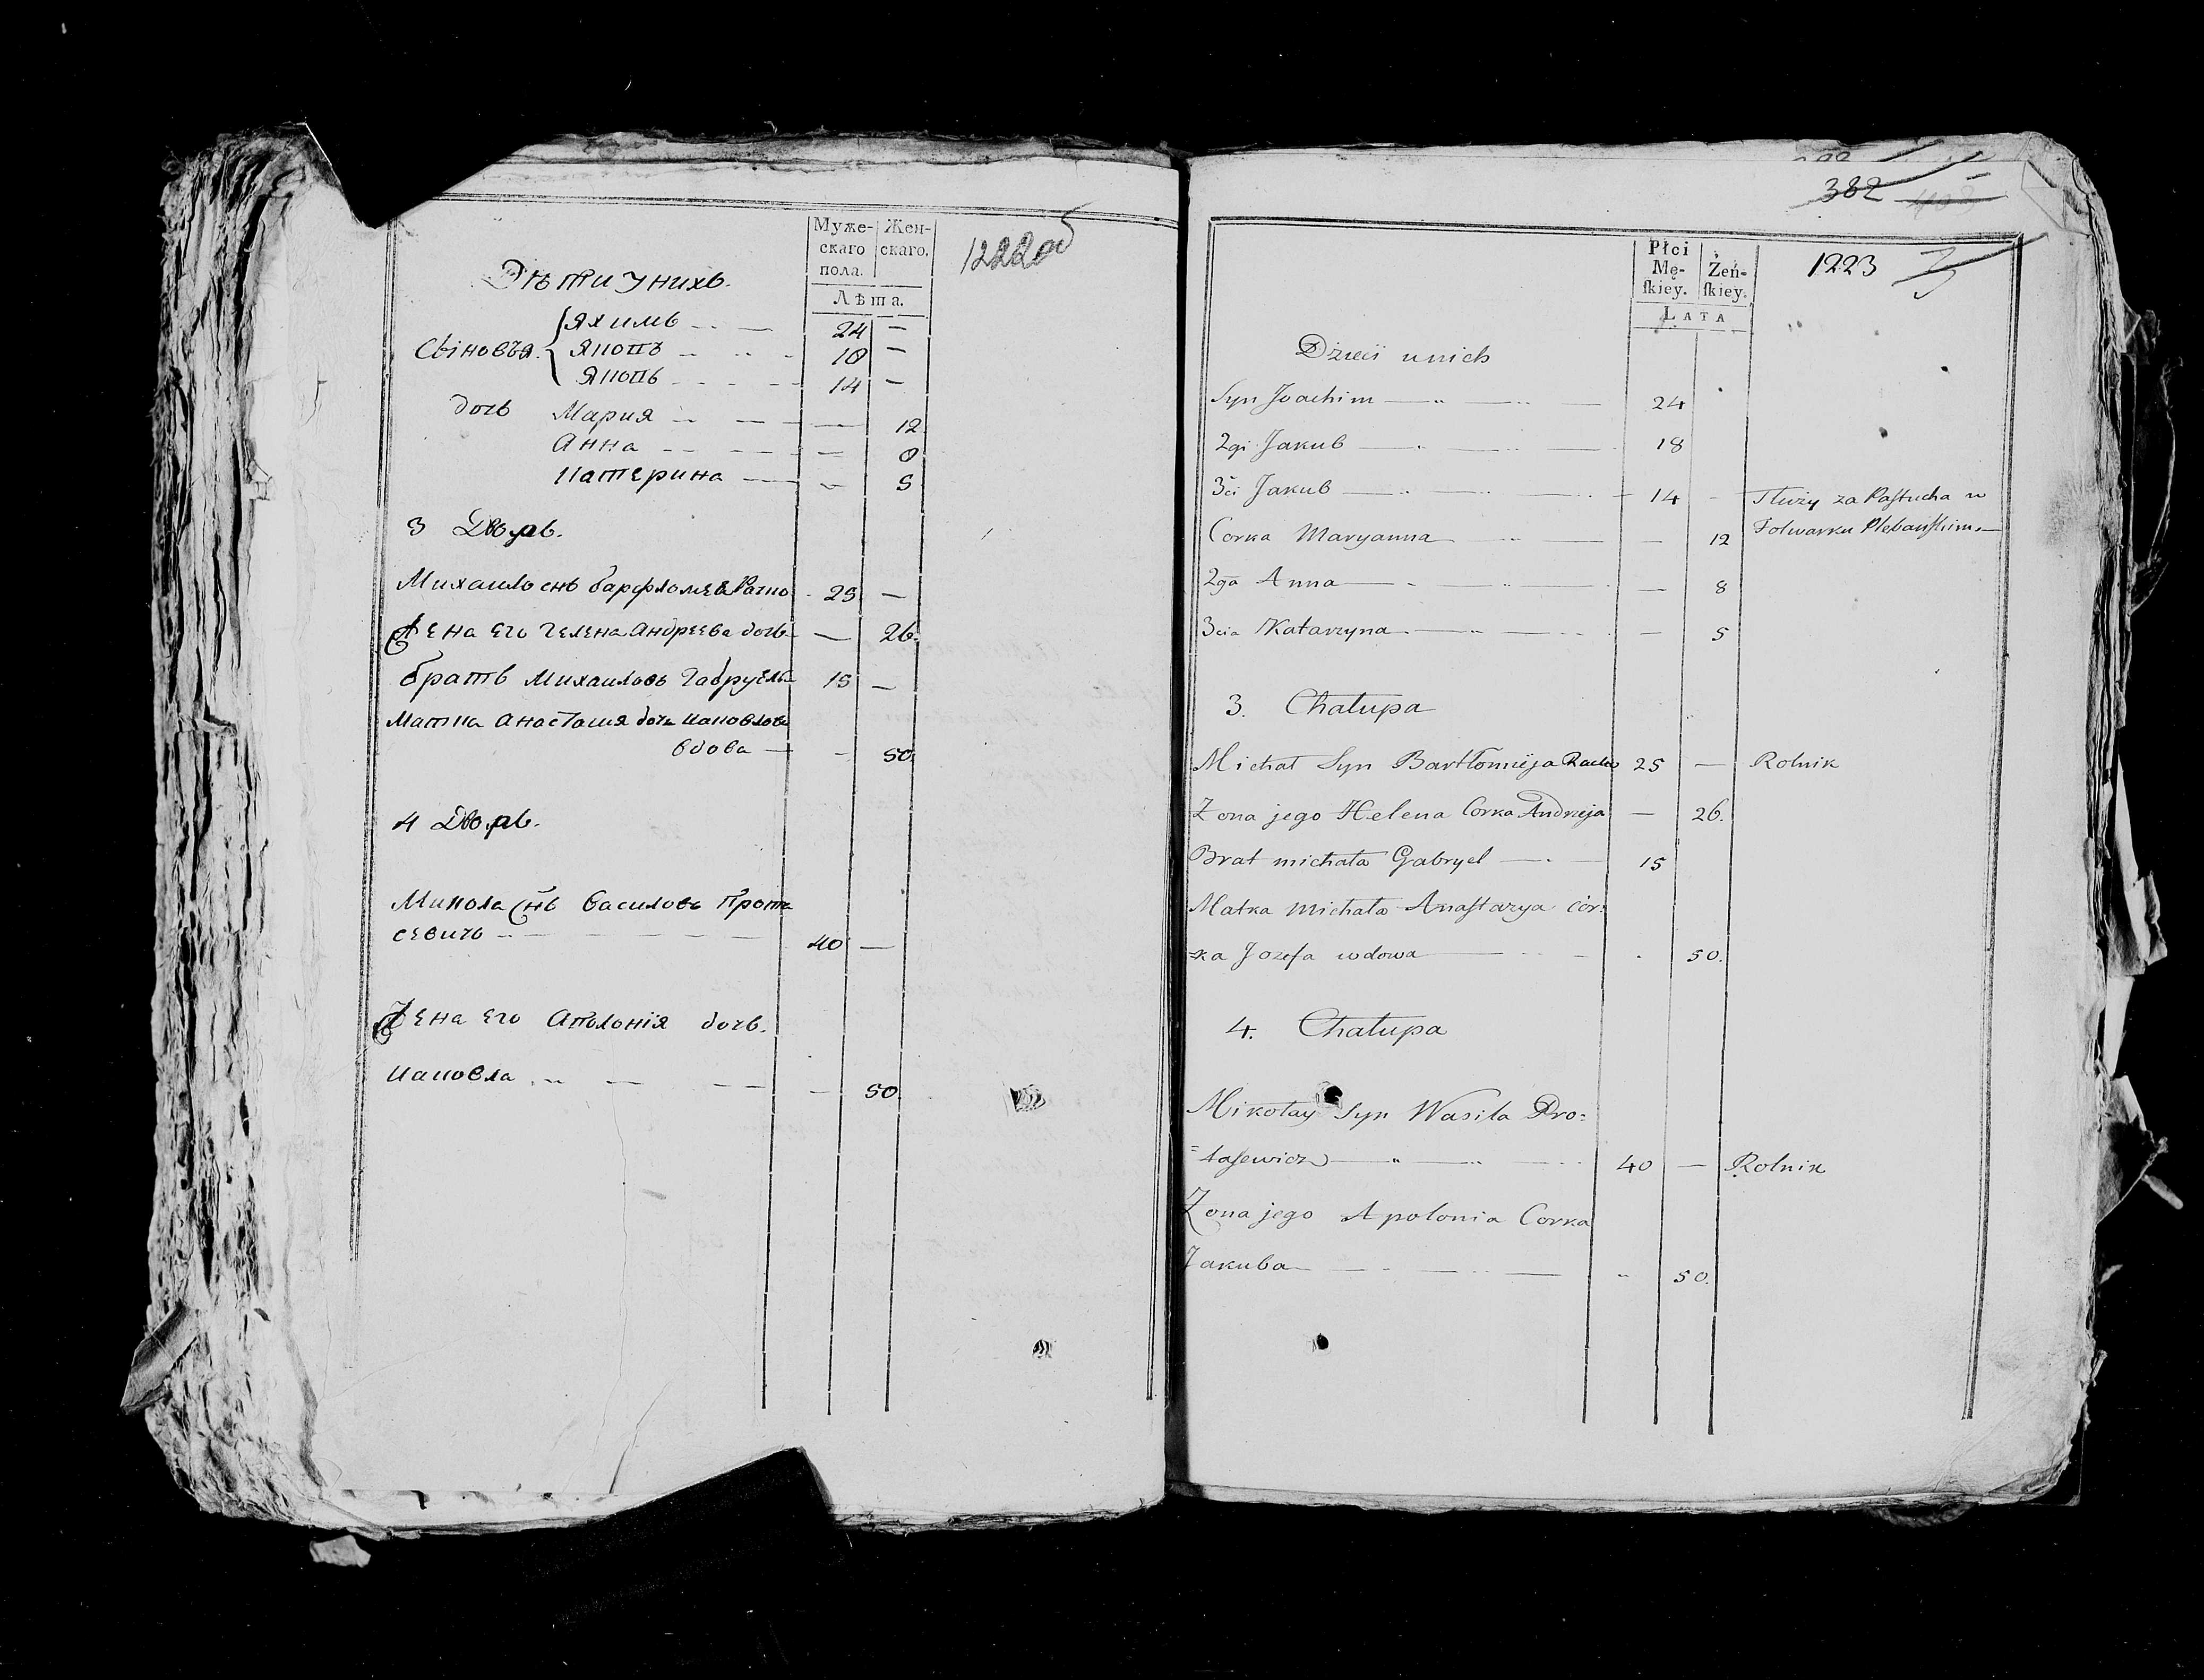 Муже-
скаго
пола.
Жен-
скаго.
Лѣта.
1222об
Дѣти У нихъ.
Сыновья.
Яхимъ 24 —
Якопъ 18 —
Якопъ 14 —
дочь Мария — 12
Анна — 8
Катерина — 5
3 Дворъ.
Михаило снъ барфломѣва 25 —
Жена Его Гелена Андреева дочь — 26.
братъ Михаиловъ Габруель 15 —
Матка Анастасия дочь
вдова — 50.
4 Дворъ.
Микола снъ василовъ Прота
севичъ 40 —
Жена Его Аполонія дочь.
Иаковла — 50.
382
Płci
Mę-
ſkiey.
Żeń-
ſkiey.
Lata
1223
Dzieci u nich
Syn Joachim 24
2gi Jakub 18
3ci Jakub 14 — Służy za Paſtucha w
Folwarku Plebańſkim.
Corka Maryanna — 12
2ga Anna — 8
3cia Katarzyna — 5
3. Chałupa
Michał Syn Bartłomieja 25 — Rolnik
Zona jego Helena Corka Andrzeja — 26.
Brat michała Gabryel 15
Matka michała Anaſtazya cór:
=ka Jozefa wdowa 50.
4. Chałupa
Mikołay Syn Wasila Pro:
=taſewicz 40 — Rolnik
Zona jego Apolonia Corka
Jakuba 50.